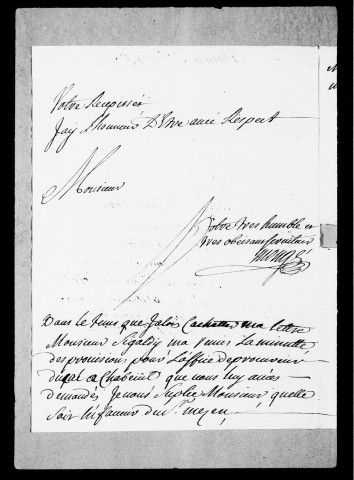 Votre
Jay Lhonneur D'etre avec Respect
Monsieur
Votre tres humble et
tres obeissant serviteur
Dans le tems que Jalois Cachetter ma lettre
Monsieur ma remis La minutte
des provisions pour L'office de procureur
a Chabeuil que nous luy avies
demandés Je vous suplie Monsieur quelle
Soit en faveur du Sr